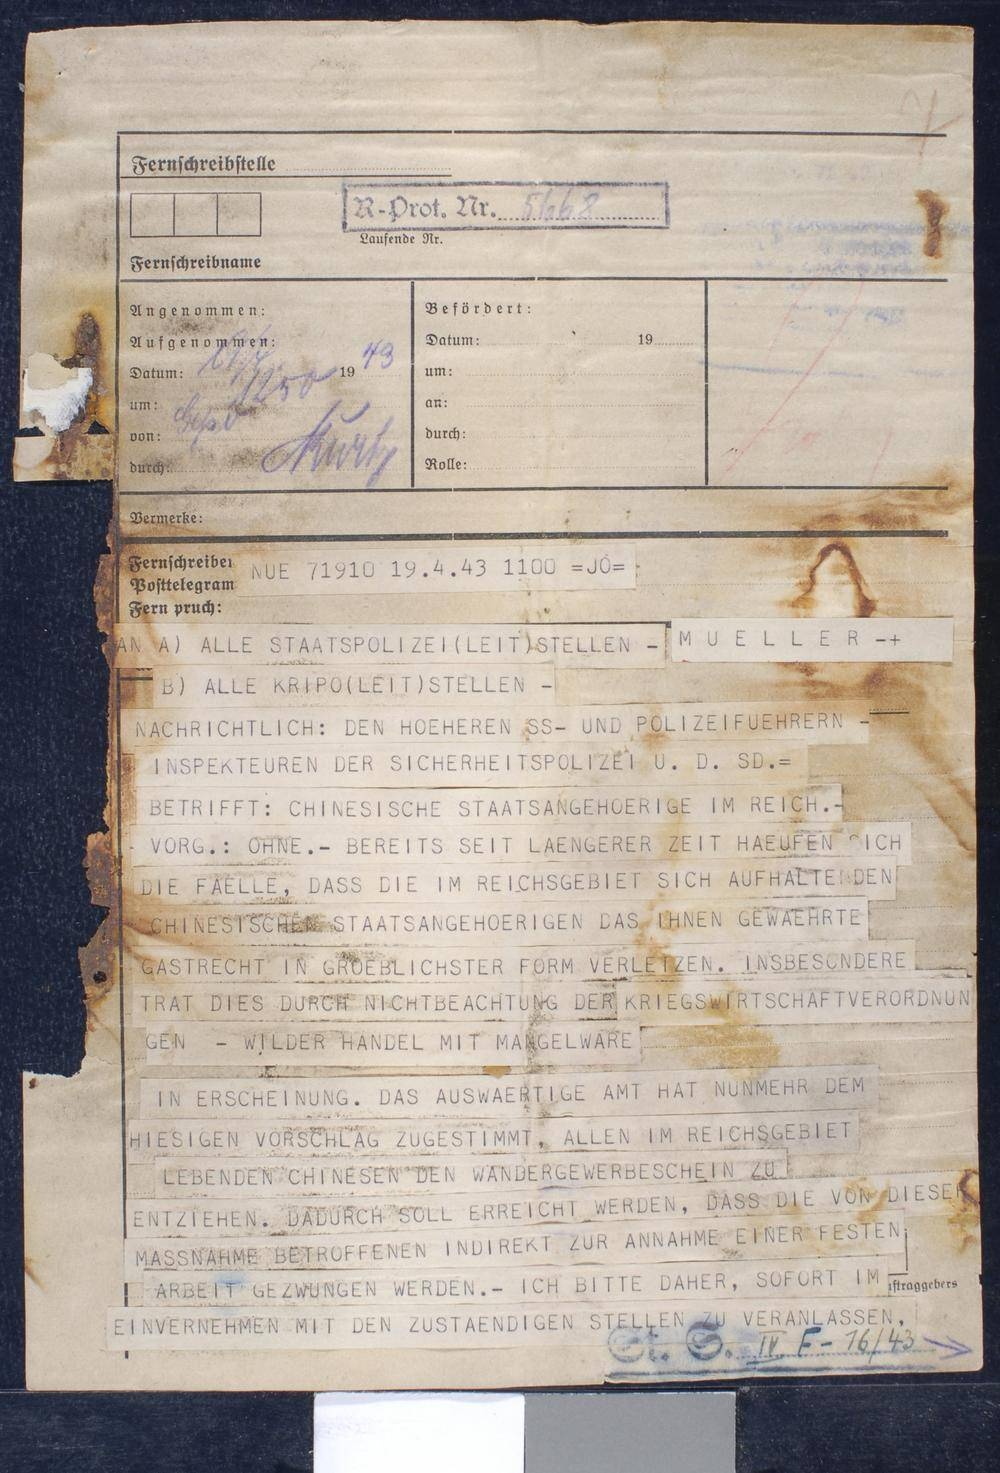 Fernschreibstelle
R-Prot. Nr. 5668
Laufende Nr.
Fernschreibname
Angenommen:
Aufgenommen:
Datum: 19 43
um: 1250
von:
durch: Kurtz
Befördert:
Datum: 19
um:
an:
durch:
Rolle:
Vermerke:
Fernschreiben
Posttelegram
Fern pruch:
NUE 71910 19.4.43 1100 =JO=
AN A) ALLE STAATSPOLIZEI(LEIT)STELLEN - MUELLER -+
B) ALLE KRIPO(LEIT)STELLEN -
NACHRICHTLICH: DEN HOEHEREN SS- UND POLIZEIFUEHRERN -
INSPEKTEUREN DER SICHERHEITSPOLIZEI U. D. SD.=
BETRIFFT: CHINESISCHE STAATSANGEHOERIGE IM REICH.-
VORG.: OHNE.- BEREITS SEIT LAENGERER ZEIT HAEUFEN SICH
DIE FAELLE, DASS DIE IM REICHSGEBIET SICH AUFHALTENDEN
CHINESISCHEN STAATSANGEHOERIGEN DAS IHNEN GEWAEHRTE
GASTRECHT IN GROEBLICHSTER FORM VERLETZEN. INSBESONDERE
TRAT DIES DURCH NICHTBEACHTUNG DER KRIEGSWIRTSCHAFTVERORDNUN
GEN - WILDER HANDEL MIT MANGELWARE
IN ERSCHEINUNG. DAS AUSWAERTIGE AMT HAT NUNMEHR DEM
HIESIGEN VORSCHLAG ZUGESTIMMT, ALLEN IM REICHSGEBIET
LEBENDEN CHINESEN DEN WANDERGEWERBESCHEIN ZU
ENTZIEHEN. DADURCH SOLL ERREICHT WERDEN, DASS DIE VON DIESER
MASSNAHME BETROFFENEN INDIREKT ZUR ANNAHME EINER FESTEN
ARBEIT GEZWUNGEN WERDEN.- ICH BITTE DAHER, SOFORT IM
ftraggebers
EINVERNEHMEN MIT DEN ZUSTAENDIGEN STELLEN ZU VERANLASSEN,
St. S. IV F - 16/43